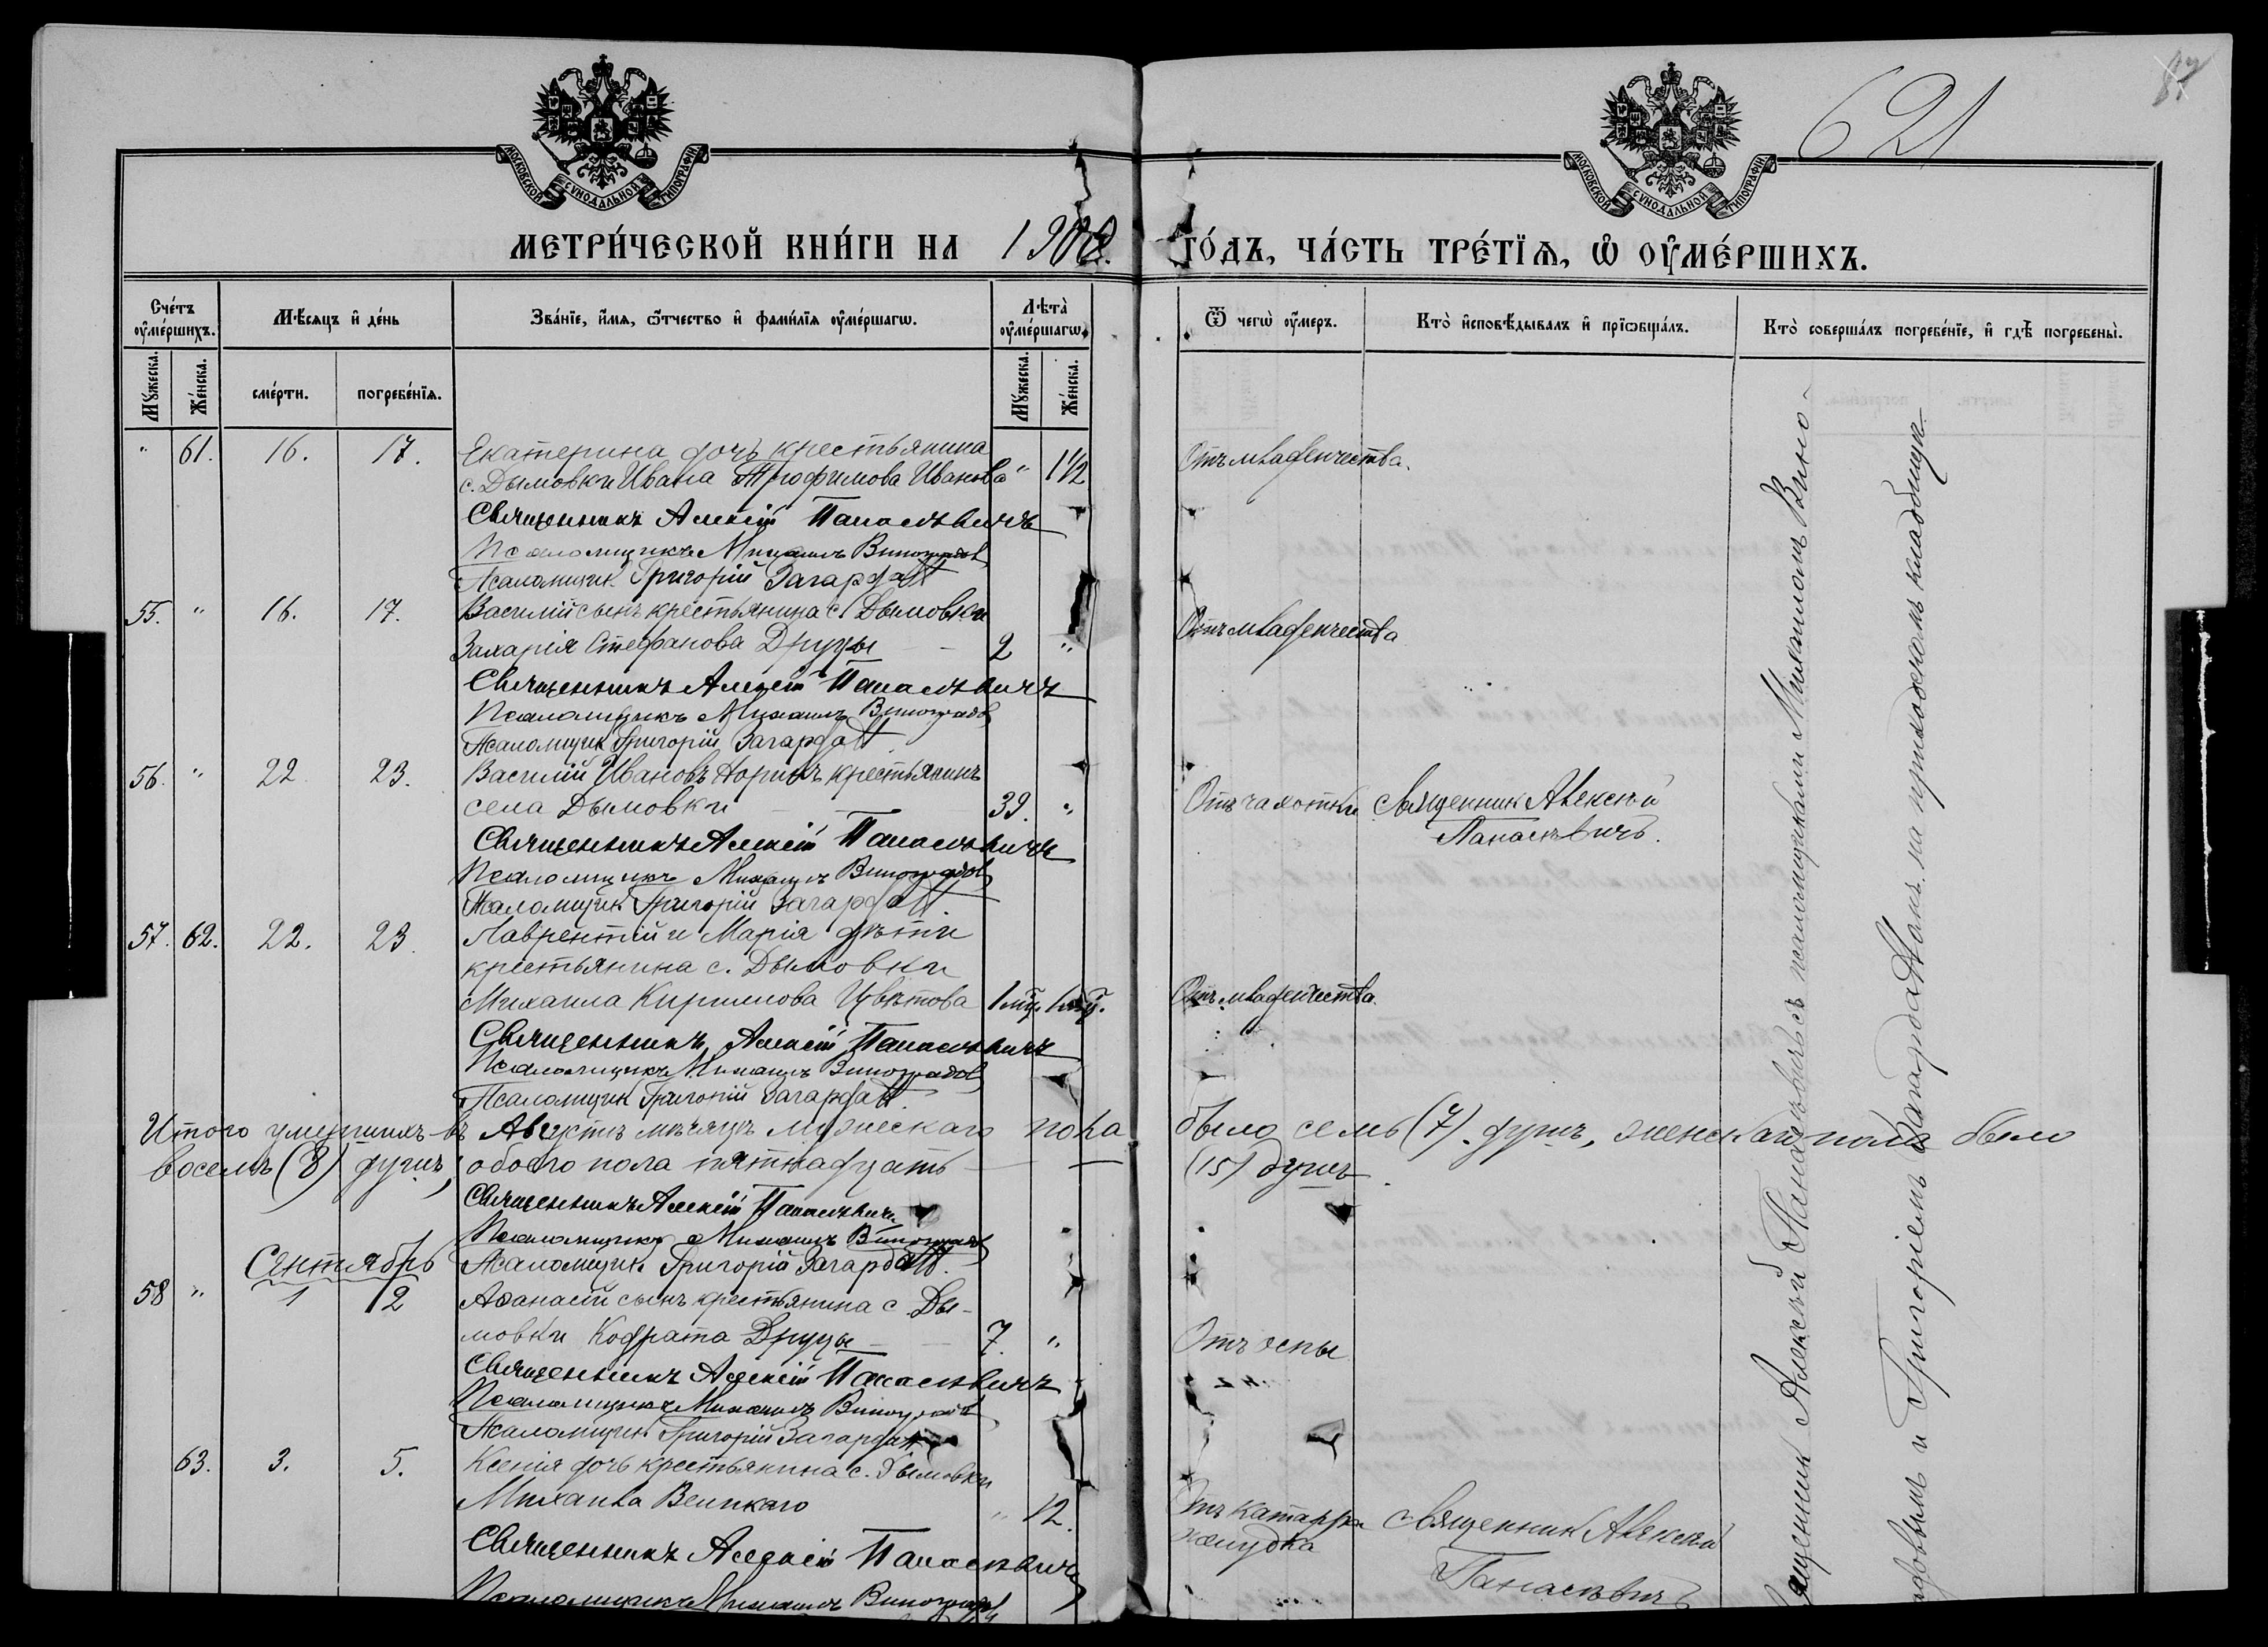 621
МОСКОВСКОЙ СѴНОДАЛЬНОЙ ТИПОГРАФІИ
МОСКОВСКОЙ СѴНОДАЛЬНОЙ ТИПОГРАФІИ
МЕТРИ́ЧЕСКОЙ КНИ́ГИ НА 1900. ГО́ДЪ, ЧА́СТЬ ТРЕ́ТІѦ, Ѡ҆ ОУ҆МЕ́РШИХЪ.
Сче́тъ оу҆ме́ршихъ.
Мѣ́сяцъ и҆ де́нь
Зва́нїе, и҆́мя, ѻ҆́тчество и҆ фами́лїя оу҆ме́ршагѡ.
Лѣта̀ оу҆ме́ршагѡ.
Ѿ чегѡ̀ оу҆́меръ.
Кто̀ и҆сповѣ́дывалъ и҆ прїѡбща́лъ.
Кто̀ соверша́лъ погребе́нїе, и҆ гдѣ̀ погребены̀.
Мꙋ́жеска.
Же́нска.
сме́рти.
погребе́нїя.
Мꙋ́жеска.
Же́нска.
" 61. 16. 17. Екатерина дочь крестьянина
с. Дымовки Ивана Трофимова Иванова " 1½ Отъ младенчества.
Священникъ Алексій Панасевичъ
Псаломщикъ Михаилъ Виноградов
Псаломщик Григорій Загардан
55. " 16. 17. Василій сынъ крестьянина с. Дымовки
Захарія Стефанова Друцы 2 " Отъ младенчества
Священникъ Алексій Панасевичъ
Псаломщикъ Михаилъ Виноградов
Псаломщик Григорій Загардан
56. " 22 23. Василій Ивановъ крестьянинъ
села Дымовки 39. " Отъ чахотки Священник Алексѣй
Панасевичъ.
Священникъ Алексій Панасевичъ
Псаломщикъ Михаилъ Виноградов
Псаломщик Григорій Загардан
57. 62. 22. 23. Лаврентій и Марія дѣти
крестьянина с. Дымовки
Михаила Кирилова Цвѣтова Отъ младенчества
Священникъ Алексій Панасевичъ
Псаломщикъ Михаилъ Виноградов
Псаломщик Григорій Загардан
Итого умершихъ въ Августѣ мѣсяцѣ мужескаго пола было семь (7) душъ, женскаго пола было
восемь (8) душъ, обоего пола пятнадцать (15) душъ.
Священникъ Алексій Панасевичъ
Псаломщикъ Михаилъ Виноградов
Сентябрь Псаломщик Григорій Загардан
58 " 1 2 Аѳанасій сынъ крестьянина с. Ды-
мовки Кодрата Друцы 7. " Отъ оспы
Священникъ Алексій Панасевичъ
Псаломщикъ Михаилъ Виноградов
Псаломщик Григорій Загардан
63. 3. 5. Ксенія дочь крестьянина с. Дымовки
Михаила Великаго " 12. Отъ катарра желудка Священник Алексѣй
Панасевичъ
Священникъ Алексій Панасевичъ
Псаломщикъ Михаилъ Виноградов
Священник Алексѣй Панасевичъ съ псаломщиками Михаиломъ Вино-
градовымъ и Григоріемъ на приходскомъ кладбищѣ